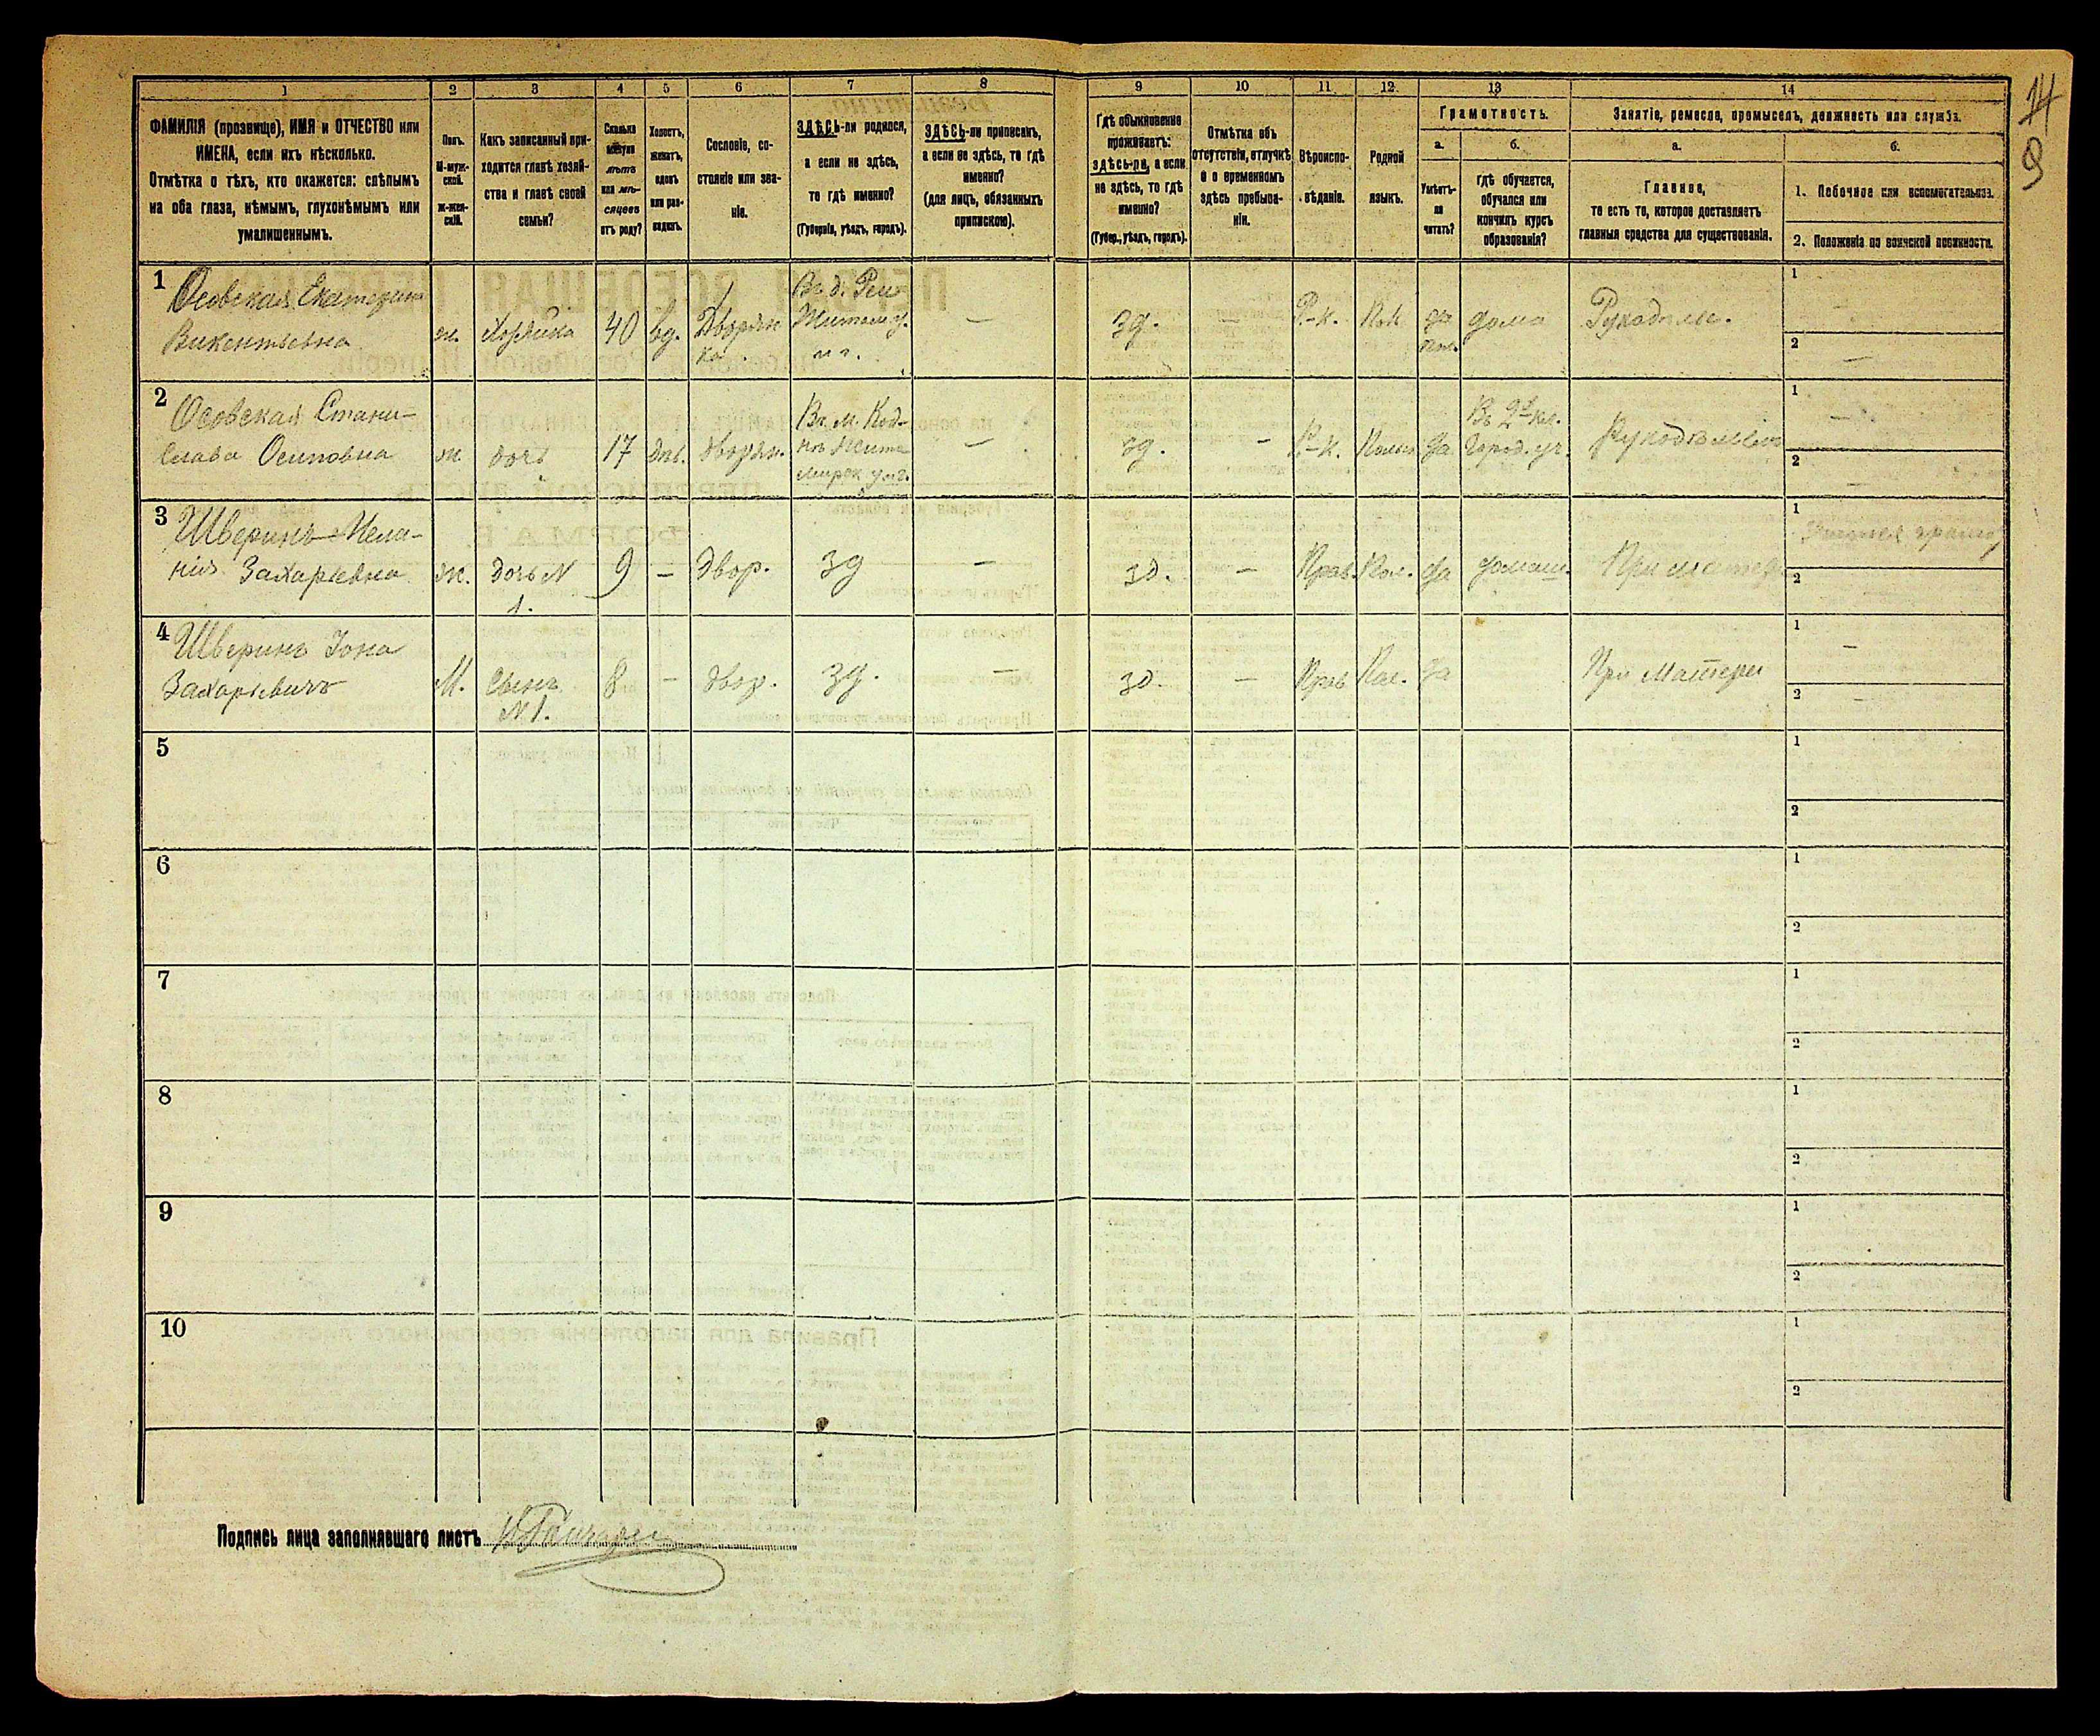 14
9
1
2
3
4
5
6
7
8
9
10
11
12
13
14
ФАМИЛІЯ (прозвище), ИМЯ и ОТЧЕСТВО или
ИМЕНА, если ихъ нѣсколько.
Отмѣтка о тѣхъ, кто окажется: слѣпымъ
на оба глаза, нѣмымъ, глухонѣмымъ или
умалишеннымъ.
Полъ.
М-муж-
ской.
Ж-жен-
скій.
Какъ записанный при-
ходится главѣ хозяй-
ства и главѣ своей
семьи?
Сколько
минуло
лѣтъ
или мѣ-
сяцевъ
отъ роду?
Холостъ,
женатъ,
вдовъ
или раз-
веденъ.
Сословіе, со-
стояніе или зва-
ніе.
ЗДѢСЬ-ли родился,
а если не здѣсь,
то гдѣ именно?
(Губернія, уѣздъ, городъ).
ЗДѢСЬ-ли приписанъ,
а если не здѣсь, то гдѣ
именно?
(для лицъ, обязанныхъ
припискою).
Гдѣ обыкновенно
проживаетъ:
здѣсь-ли, а если
не здѣсь, то гдѣ
именно?
(Губер., уѣздъ, городъ).
Отмѣтка объ
отсутствіи, отлучкѣ
и о временномъ
здѣсь пребыва-
ніи.
Вѣроиспо-
вѣданіе.
Родной
языкъ.
Грамотность.
а.
Умѣетъ-
ли
читать?
б.
гдѣ обучается,
обучался или
кончилъ курсъ
образованія?
Занятіе, ремесло, промыселъ, должность или служба.
а.
Главное,
то есть то, которое доставляетъ
главныя средства для существованія.
б.
1. Побочное или вспомогательное.
2. Положеніе по воинской повинности.
1
Осовская Екатерина
Викентьевна
ж.
Хозяйка
40
вд.
Дворян
ка
Въ д.
Житом. у.
—
зд.
—
Р.-к.
Пол
да
дома
Рукодѣліе.
1
2
—
2
Осовская Стани-
слава Осиповна
ж
дочь
17
дѣв.
дворян.
Въ м. Код-
нѣ Жито
мирск уѣз.
—
зд.
—
Р.-к.
Польск
да
Въ 2й кл.
Город. уч.
Рукодѣліемъ
1
—
2
—
3
Шверинъ Мела-
нія Захарьевна
ж.
дочь N
1.
9
—
двор.
зд
—
зд.
—
Прав.
Пол.
да
домаш.
При матери
1
2
4
Шверинъ Іона
Захарьевичъ
М.
Сынъ
N 1.
8
—
двор.
зд.
—
зд.
—
Прав
Пол.
да
При Матери
1
—
2
—
5
1
2
6
1
2
7
1
2
8
1
2
9
1
2
10
1
2
Подпись лица заполнявшаго листъ